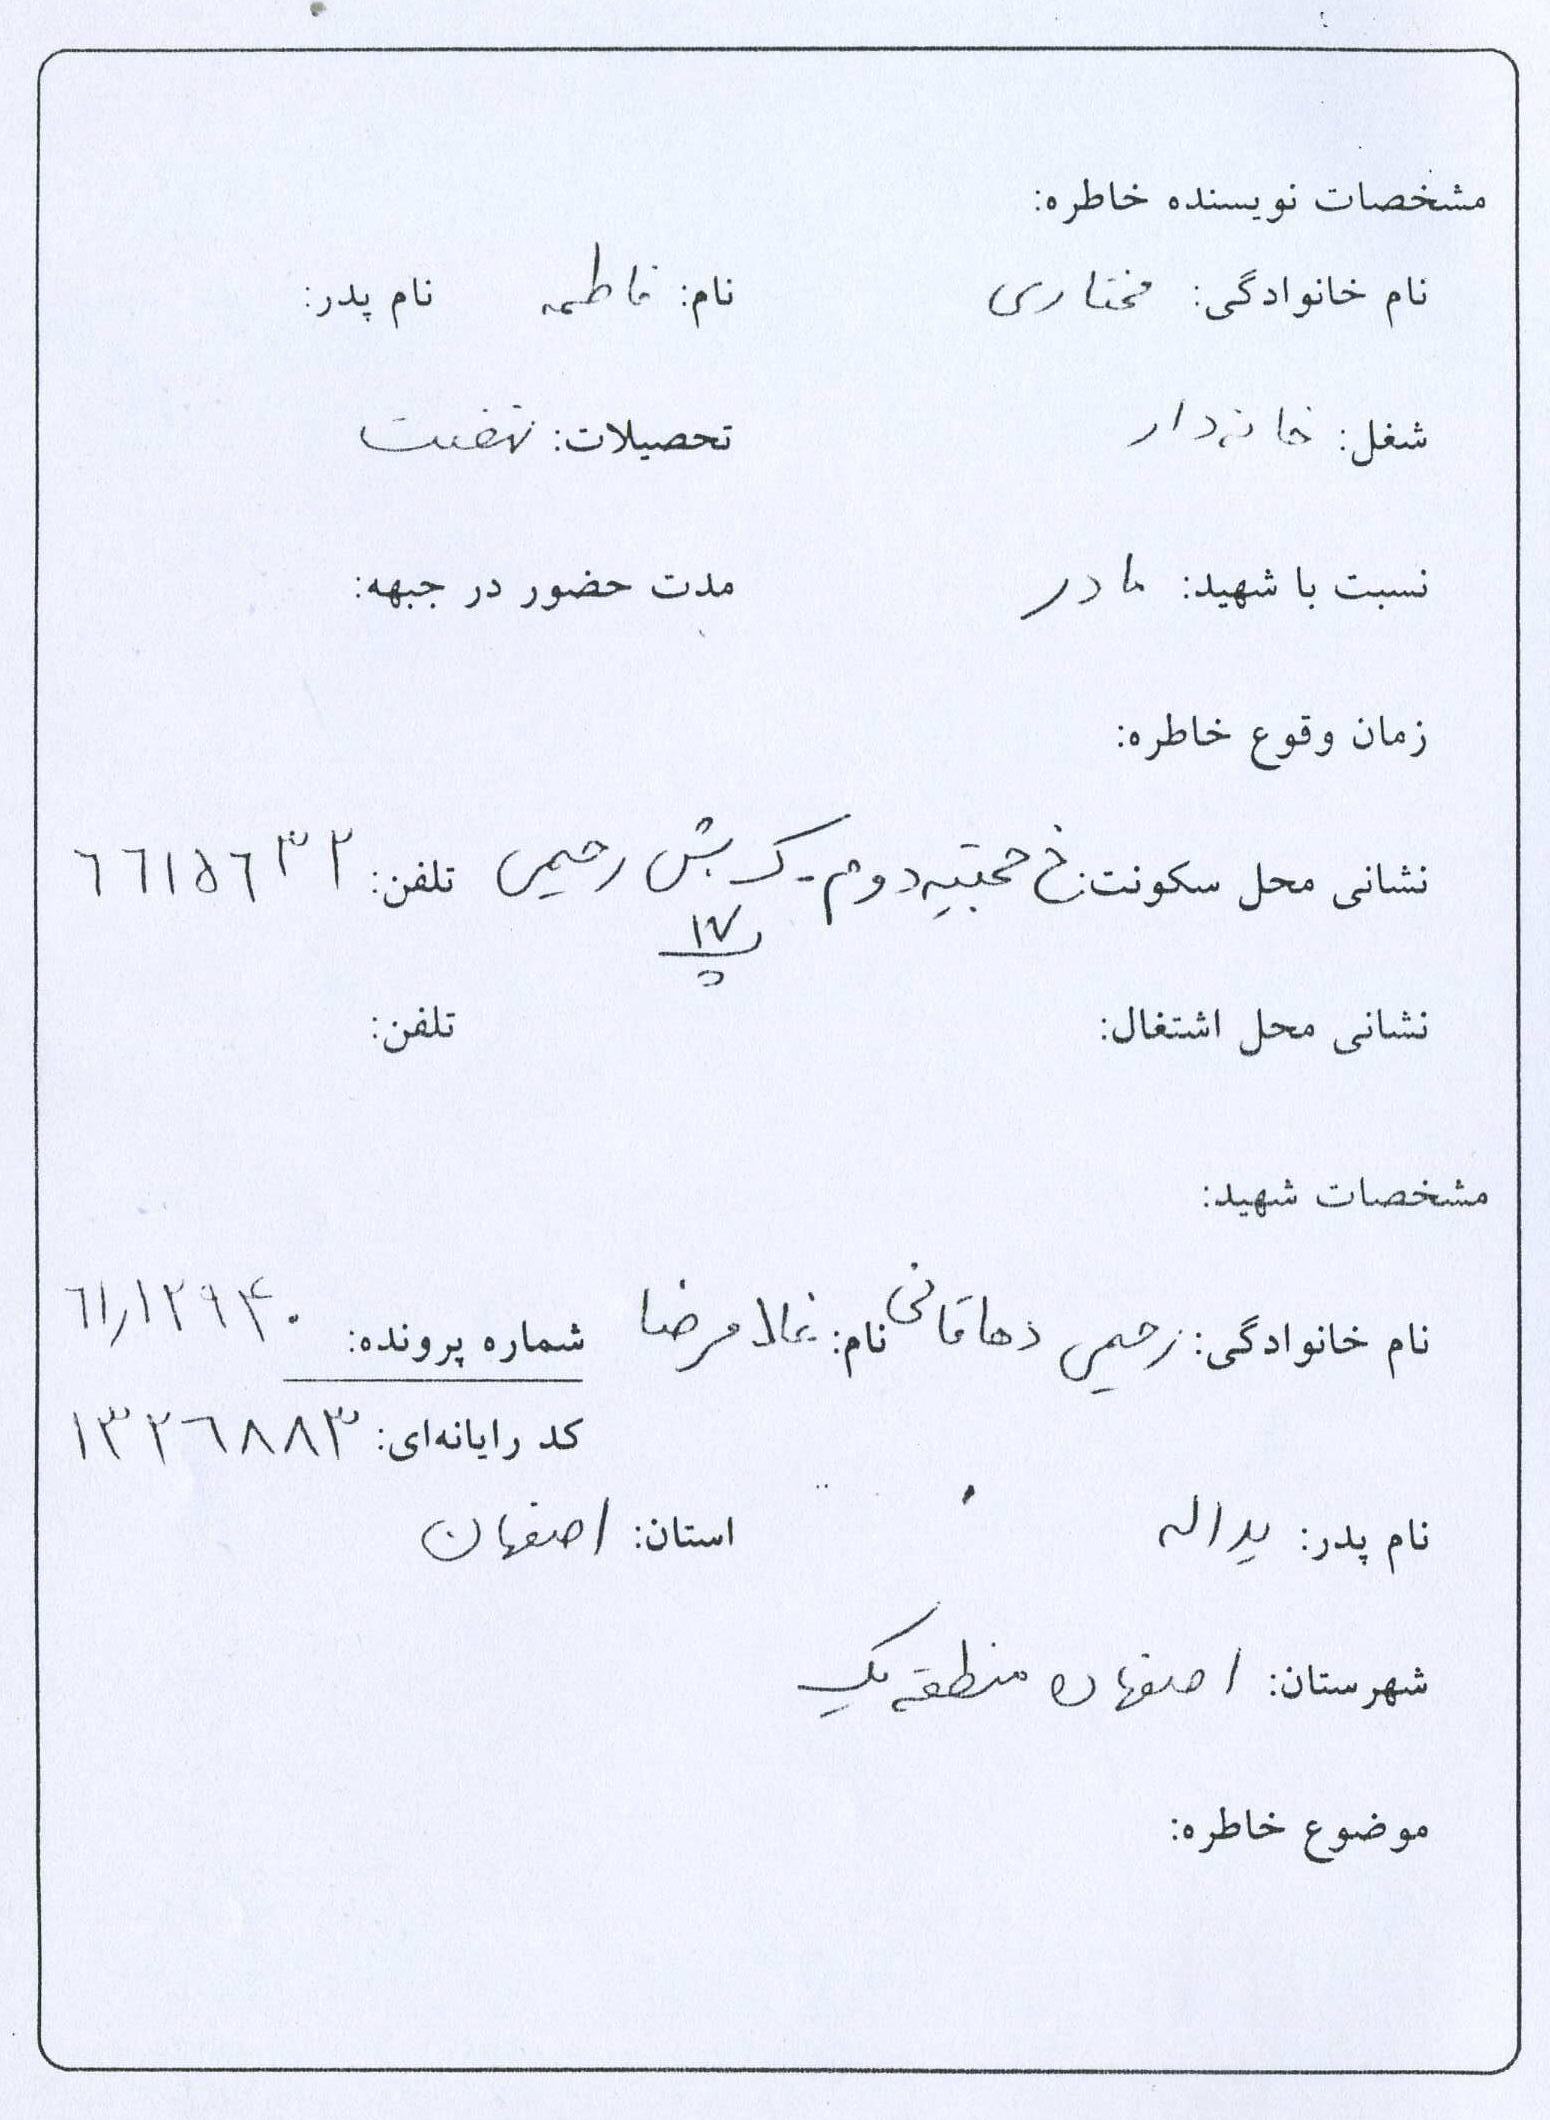 مشخصات نویسنده خاطره:
نام خانوادگی: مختاری نام: فاطمه نام پدر:
شغل: خانه‌دار تحصیلات: نهضت
نسبت با شهید: مادر مدت حضور در جبهه:
زمان وقوع خاطره:
نشانی محل سکونت: خ مجتبیه دوم - ک رحیمی تلفن: ۶۶۱۵۶۳۲
پ ۱۷
نشانی محل اشتغال: تلفن:
مشخصات شهید:
نام خانوادگی: رحیمی دهاقانی نام: غلامرضا شماره پرونده: ۶۱/۱۲۹۴۰
کد رایانه‌ای: ۱۳۲۶۸۸۳
نام پدر: یداله استان: اصفهان
شهرستان: اصفهان منطقه یک
موضوع خاطره: